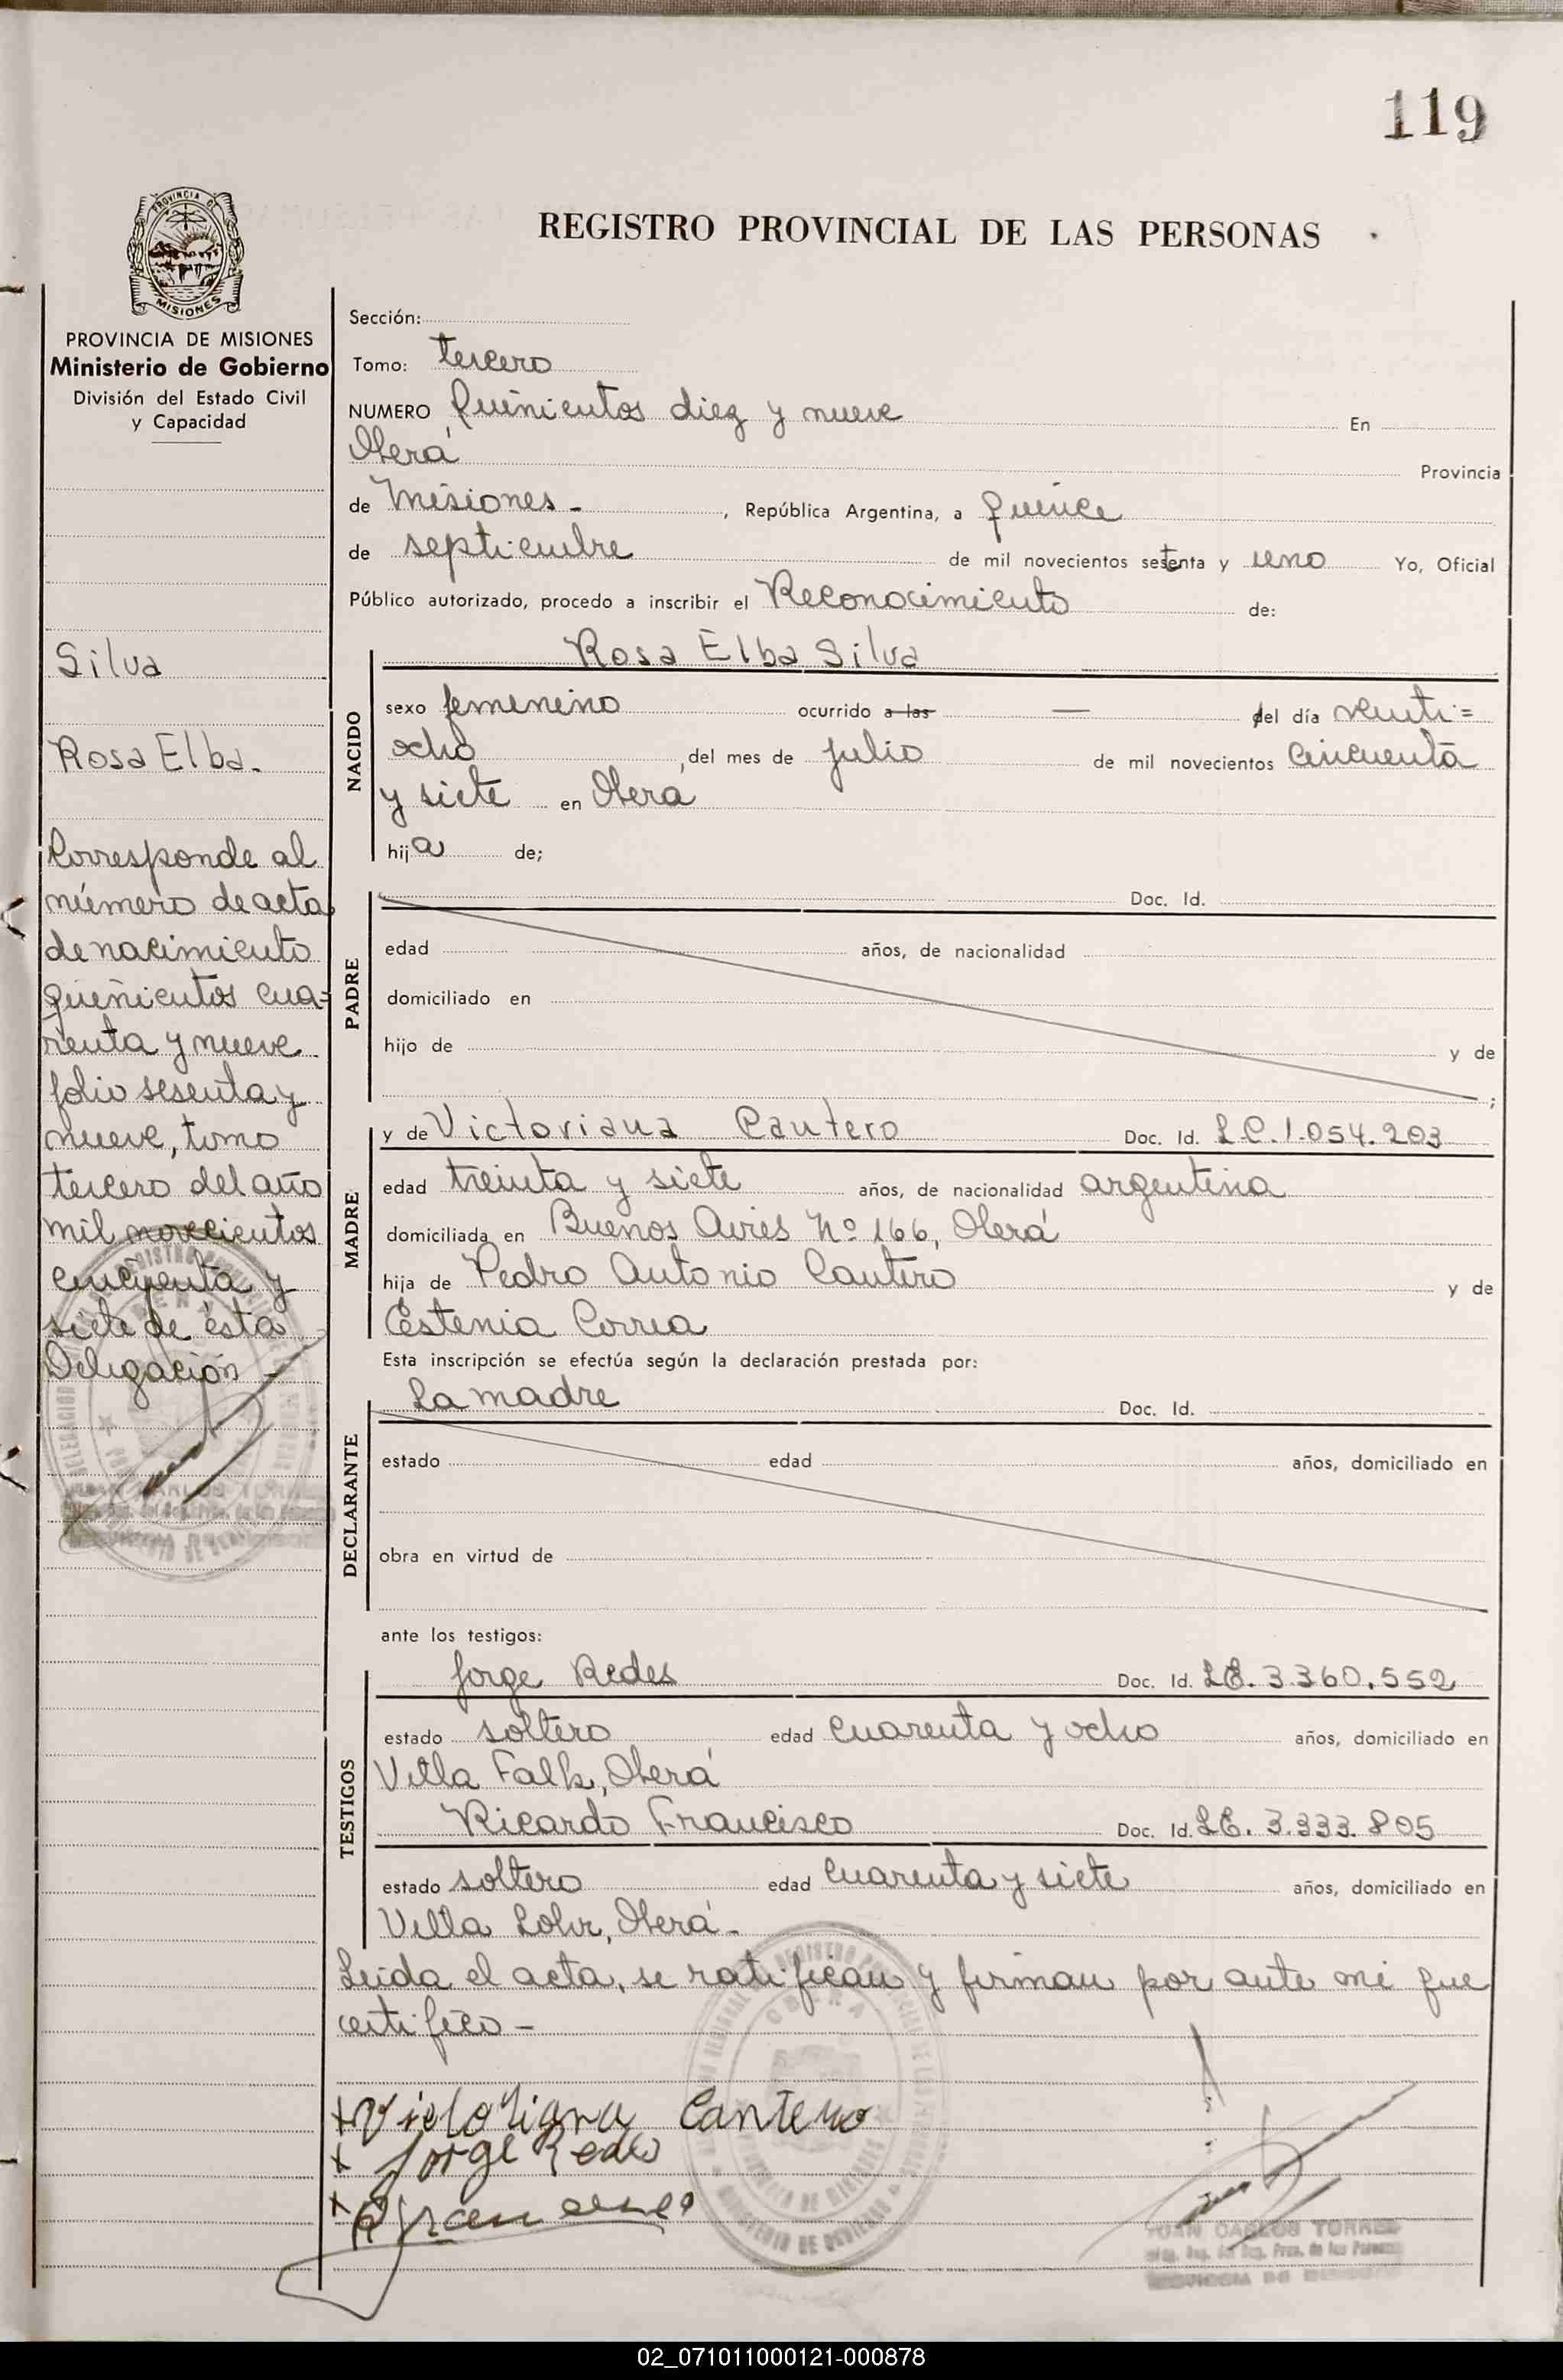 119
PROVINCIA DE
MISIONES
REGISTRO PROVINCIAL DE LAS PERSONAS
PROVINCIA DE MISIONES
Ministerio de Gobierno
División del Estado Civil
y Capacidad
Silva
Rosa Elba.
Corresponde al
número de acta
de nacimiento
quinientos cua=
renta y nueve
folio sesenta y
nueve, tomo
tercero del año
mil novecientos
cincuenta y
siete de ésta
Delegación -
Sección:
Tomo: tercero
NUMERO Quinientos diez y nueve En
Oberá Provincia
de Misiones - , República Argentina, a quince
de septiembre de mil novecientos setenta y uno Yo, Oficial
Público autorizado, procedo a inscribir el Reconocimiento de:
Rosa Elba Silva
NACIDO
sexo femenino ocurrido a las — del día veinti=
ocho del mes de julio de mil novecientos cincuenta
y siete en Oberá
hija de;
PADRE
Doc. Id.
edad años, de nacionalidad
domiciliado en
hijo de y de
;
MADRE
y de Victoriana Cantero Doc. Id. L.C.1.054.203
edad treinta y siete años, de nacionalidad argentina
domiciliada en Buenos Aires Nº 166, Oberá
hija de Pedro Antonio Cantero y de
Estenia Correa
Esta inscripción se efectúa según la declaración prestada por:
DECLARANTE
La madre Doc. Id.
estado edad años, domiciliado en
obra en virtud de
ante los testigos:
TESTIGOS
Jorge Redes Doc. Id. LE. 3.360.552
estado soltero edad cuarenta y ocho años, domiciliado en
Villa Falk, Oberá
Ricardo Francisco Doc. Id. LE. 3.333.805
estado soltero edad cuarenta y siete años, domiciliado en
Villa Lohr, Oberá -
Leída el acta, se ratifican y firman por ante mi que
certifico -
+ Victoriana Cantero
x Jorge Redes
x
JUAN CARLOS TORRES
02_071011000121-000878